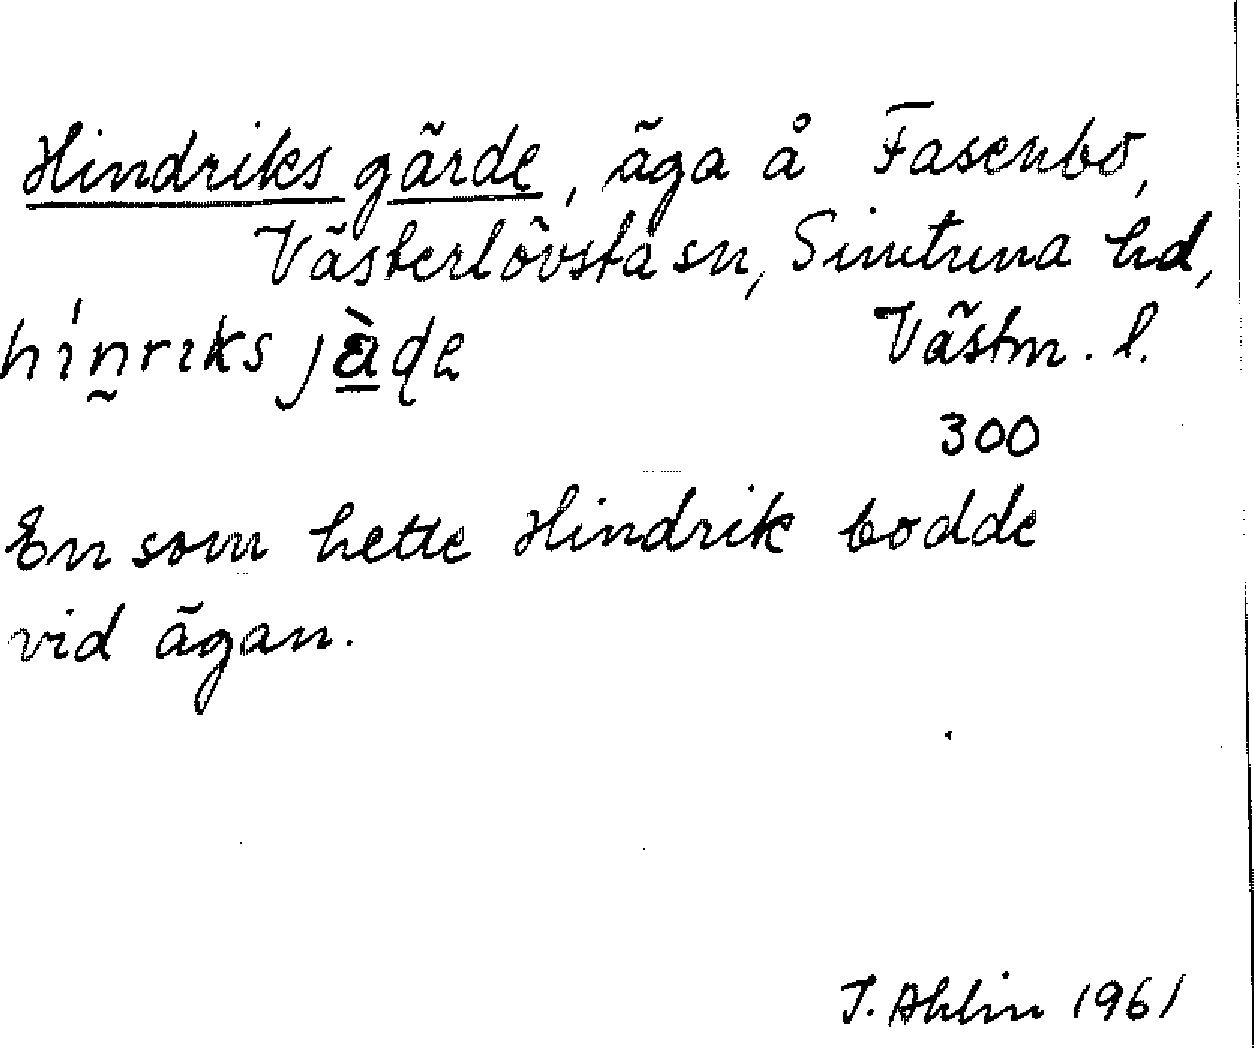 Hindriks gärde, äga å Fasenbo,
Västerlövsta sn, Simtuna hd,
hínriks jàde Västm. l.
300
En som hette Hindrik bodde
vid ägan.
J. Ahlin 1961